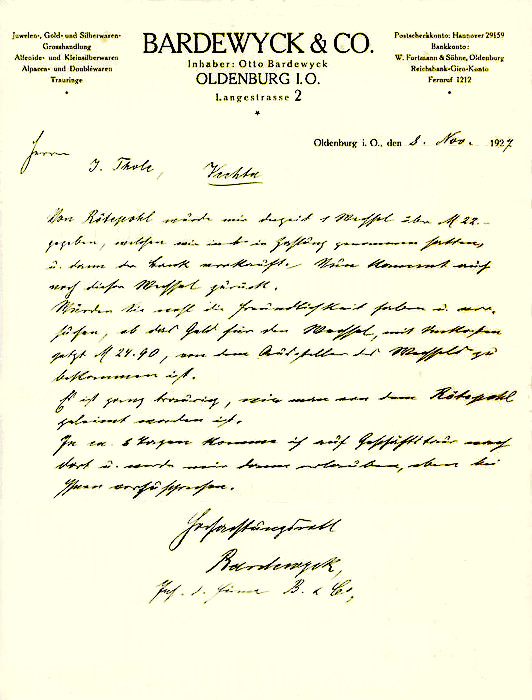 Juwelen-, Gold- und Silberwaren-
Grosshandlung
Alfenide- und Kleinsilberwaren
Alpacca- und Doubléwaren
Trauringe
BARDEWYCK & CO.
Inhaber: Otto Bardewyck
OLDENBURG I. O.
Langestrasse 2
Postscheckkonto: Hannover 29159
Bankkonto:
W. Fortmann & Söhne, Oldenburg
Reichsbank-Giro-Konto
Fernruf 1212
Oldenburg i. O., den 8. Nov. 1927
Herrn
J. Thole,
Vechta
Von Rötepohl wurde mir derzeit 1 Wechsel über M 22.–
gegeben, welchen wir in Zahlung genommen hatten,
u. dann der Bank verkauft. Nun kommt auch
noch dieser Wechsel zurück.
Würden Sie wohl die Freundlichkeit haben u. ver-
suchen, ob das Geld für den Wechsel, mit Unkosten
jetzt M 24.90, von dem Aussteller des Wechsels zu
bekommen ist.
Es ist ganz traurig, wie man von dem Rötepohl
geleimt worden ist.
In ca. 6 Tagen komme ich auf Geschäftstour nach
dort u. werde mir dann erlauben, eben bei
Ihnen vorzusprechen.
Hochachtungsvoll
Bardewyck,
Inh. d. Firma B. & Co,